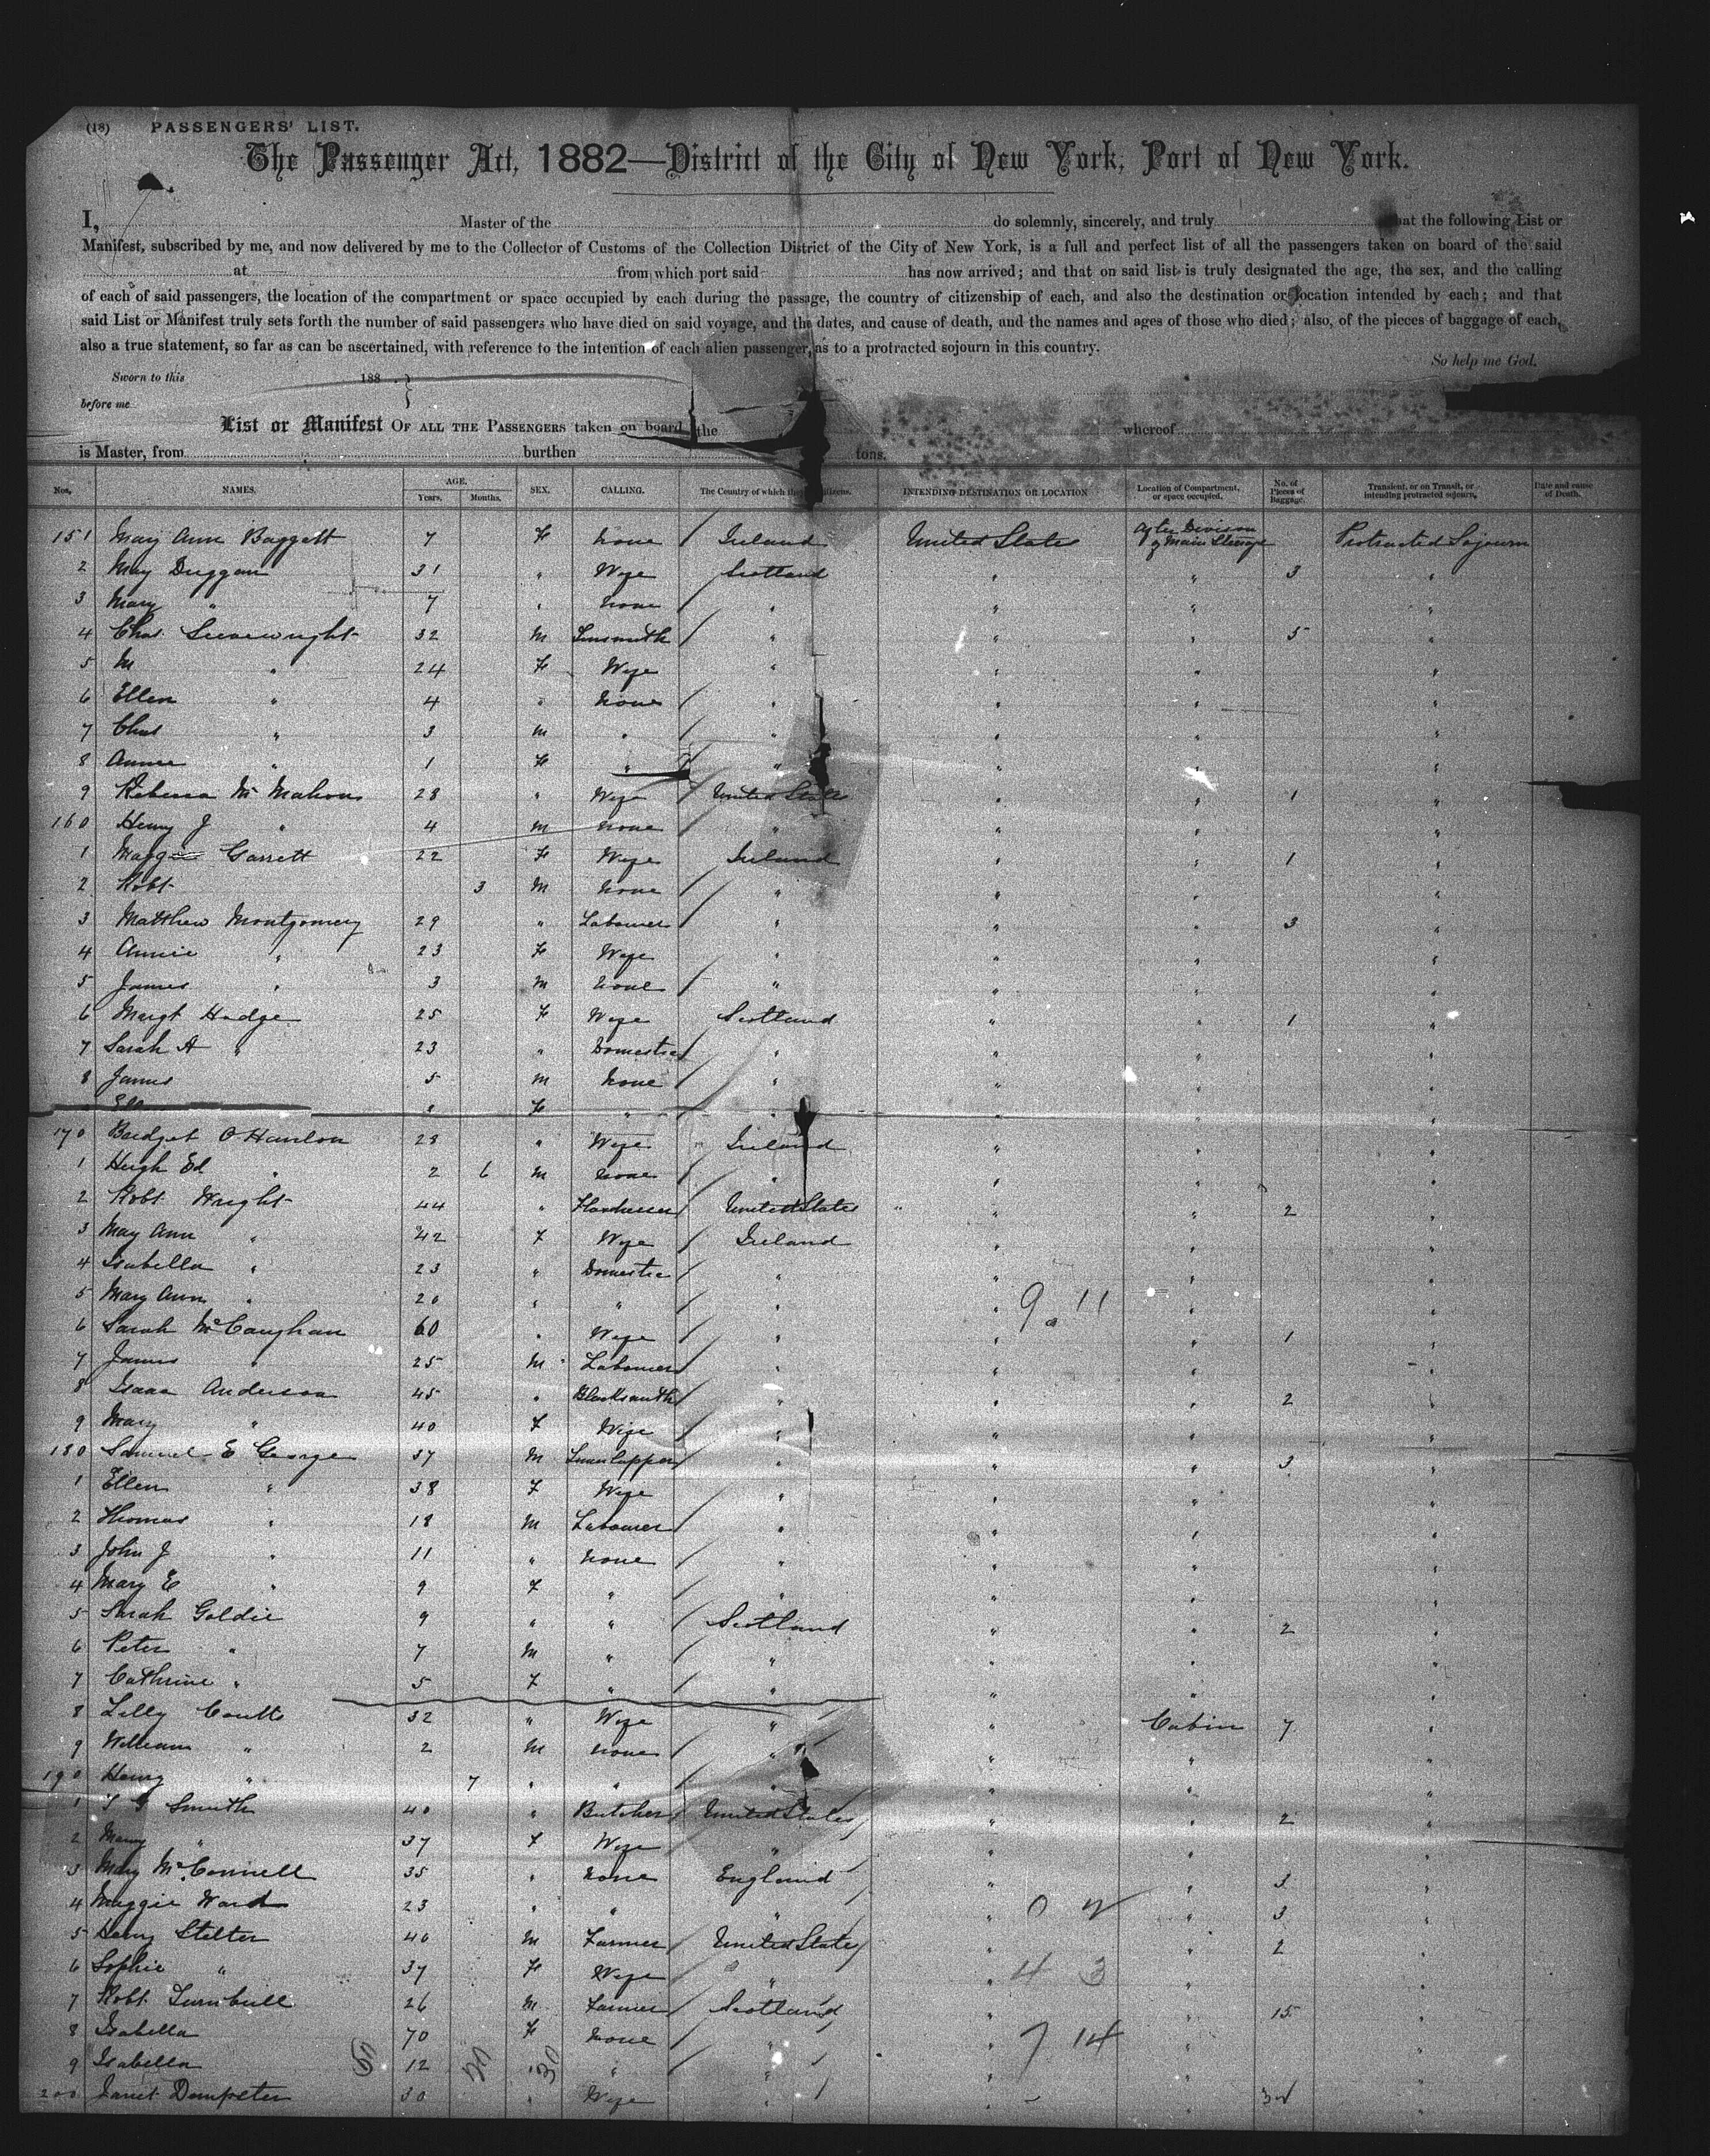 (18) PASSENGERS' LIST.
The Passenger Act, 1882—District of the City of New York, Port of New York.
I, Master of the do solemnly, sincerely, and truly that the following List or
Manifest, subscribed by me, and now delivered by me to the Collector of Customs of the Collection District of the City of New York, is a full and perfect list of all the passengers taken on board of the said
at from which port said has now arrived; and that on said list is truly designated the age, the sex, and the calling
of each of said passengers, the location of the compartment or space occupied by each during the passage, the country of citizenship of each, and also the destination or location intended by each; and that
said List or Manifest truly sets forth the number of said passengers who have died on said voyage, and the dates, and cause of death, and the names and ages of those who died; also, of the pieces of baggage of each,
also a true statement, so far as can be ascertained, with reference to the intention of each alien passenger, as to a protracted sojourn in this country.
So help me God.
Sworn to this 188
before me
List or Manifest OF ALL THE PASSENGERS taken on board the whereof
is Master, from burthen tons.
Nos. NAMES. AGE. Years. Months. SEX. CALLING. The Country of which they citizens. INTENDING DESTINATION OR LOCATION Location of Compartment, or space occupied. No. of Pieces of Baggage. Transient, or on Transit, or intending protracted sojourn. Date and cause of Death.
151 Mary Ann Baggott 7 F None / Ireland United States After Devison of Main Steerage Protracted Sojourn
2 May Duggan 31 " Wife Scotland " " 3 "
3 Mary " 7 " None / " " " "
4 Chas. 32 M Tinsmith / " " " 5 "
5 M " 24 F Wife " " " "
6 Ellen " 4 " None / " " " "
7 Chas " 3 M " / " " " "
8 Annie " 1 F " / " " " "
9 Rebecca McMahon 28 " Wife / United States " " 1 "
160 Henry J " 4 M None / " " " "
1 Maggie Garrett 22 F Wife Ireland " " 1 "
2 Robt 3 M None / " " " "
3 Matthew Montgomery 29 " Labourer / " " " 3 "
4 Annie " 23 F Wife " " " "
5 James " 3 M None / " " " "
6 Margt Hodge 25 F Wife Scotland " " 1 "
7 Sarah A " 23 " Domestic / " " " "
8 James 5 M None / " " " "
F " / " " " "
170 Bridget O'Hanlon 28 " Wife Ireland " " "
1 Hugh Ed " 2 6 M None / " " " "
2 Robt. Wright 44 " / United States " " 2 "
3 May Ann " 42 F Wife / Ireland " " "
4 Isabella " 23 " Domestic / " " " "
5 Mary Ann " 20 " " / " " 9 11 " "
6 Sarah McCaughan 60 " Wife / " " " 1 "
7 James " 25 M Labourer / " " " "
8 Isaac Anderson 45 " Blacksmith / " " " 2 "
9 Mary " 40 F Wife / " " " "
180 Samuel E George 37 M / " " " 3 "
1 Ellen " 38 F Wife / " " " "
2 Thomas " 18 M Labourer / " " " "
3 John J " 11 " None / " " " "
4 Mary E " 9 F " / " " " "
5 Sarah Goldie 9 " " / Scotland " " 2 "
6 Peter " 7 M " / " " " "
7 Cathrine " 5 F " / " " " "
8 Lilly Coutts 32 " Wife " " Cabin 7 "
9 William " 2 M None / " " " "
190 Henry " 7 " " / " " " "
1 Smith 40 " Butcher / United States / " " 2 "
2 Mary " 37 F Wife / " / " " "
3 Mary McConnell 35 " None / England / " " 3 "
4 Maggie Ward 23 " " / " / " 0 " 3 "
5 Henry Stelter 40 M Farmer / United States / " " 2 "
6 Sophie " 37 F Wife / " / " 4 3 " "
7 Robt. Turnbull 26 M Farmer / Scotland / " " 15 "
8 Isabella 70 F None / " / " 7 14 " "
9 Isabella 12 " " / " / " " "
200 Janet Dempster 30 " Wife " / " " "